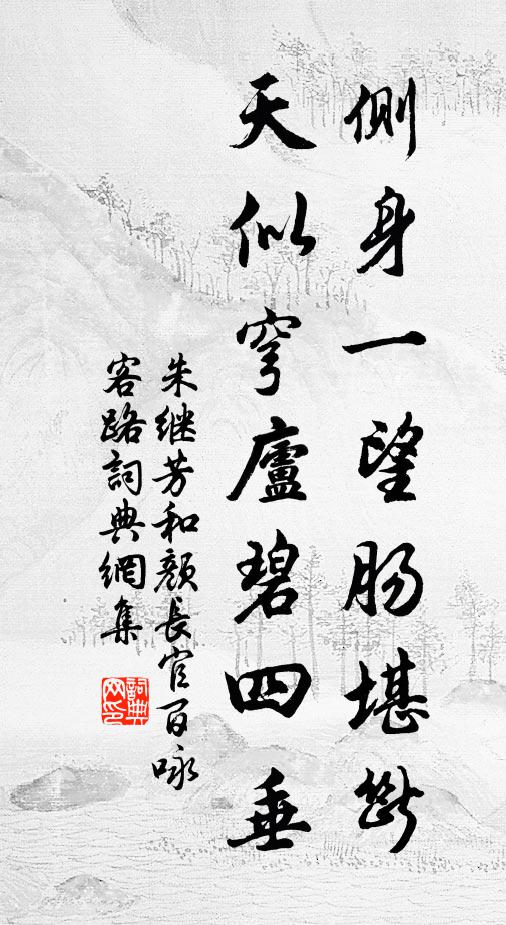 側身一望肠堪斷
天似穹廬碧四垂
朱继芳和颜長官百咏
客路詞典網集
詞典网印